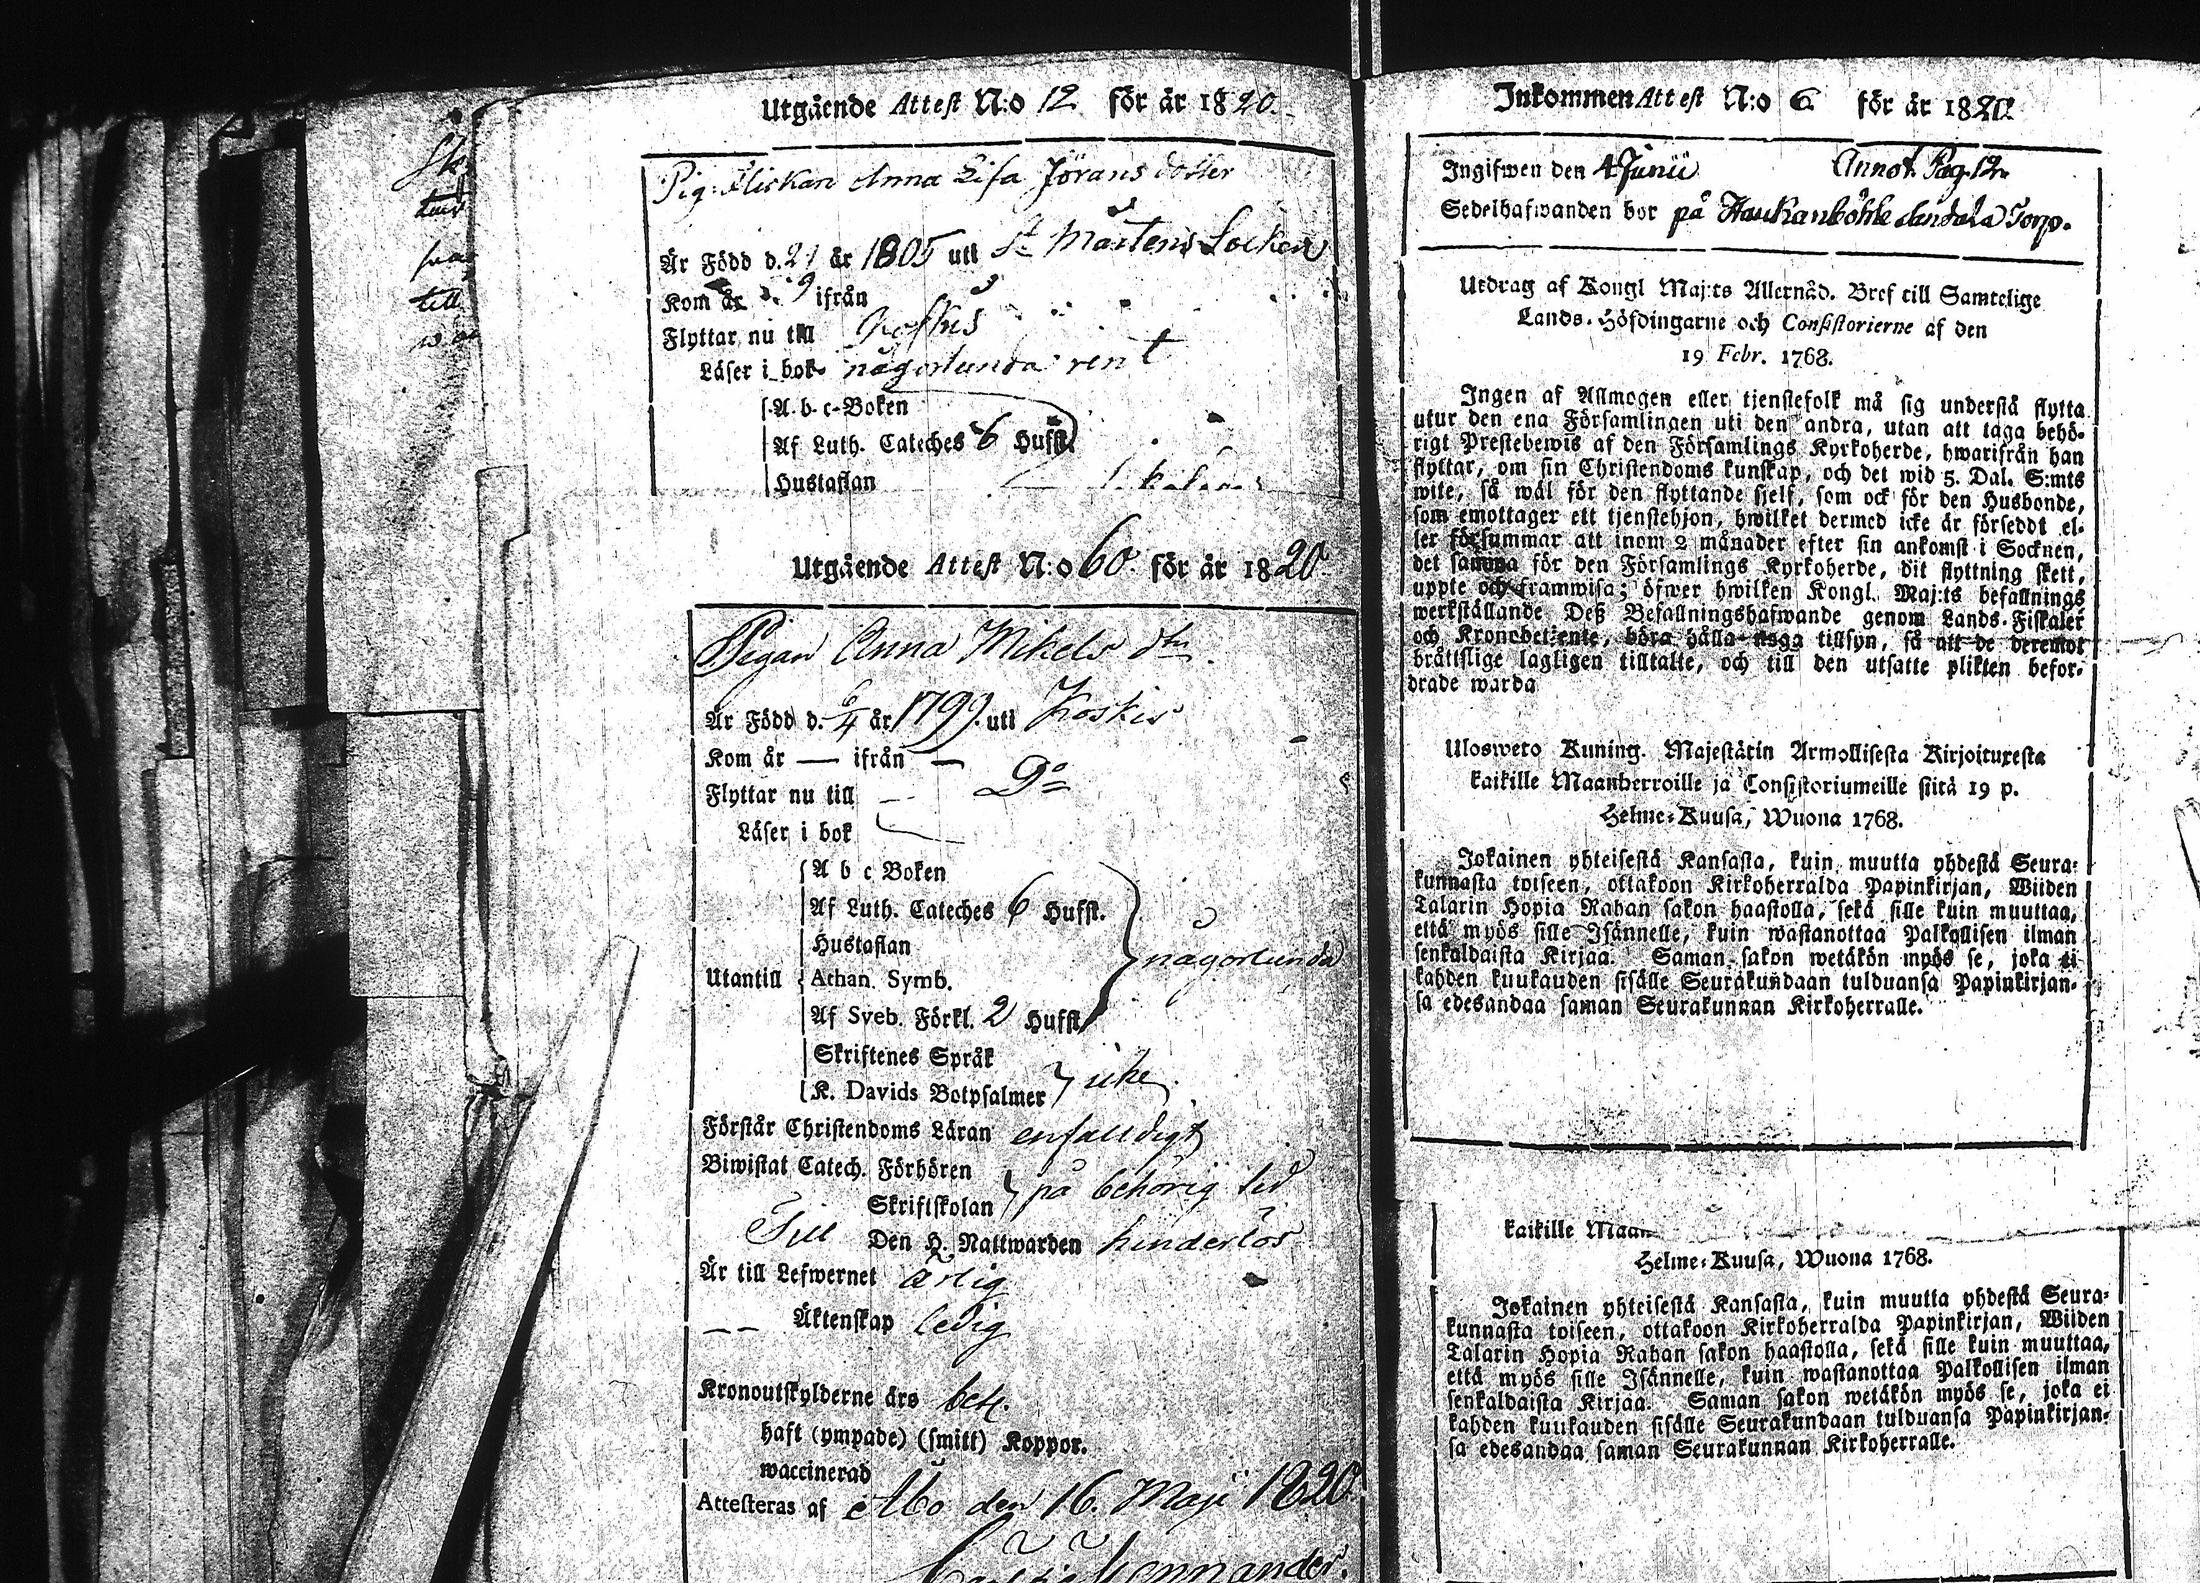 Utgående Attest N:o 12 för år 1820.
Pig-flickan Anna Lisa Jörans dotter
År Född d. 21 år 1805 uti St Mårtens Socken
9
Kom år ifrån
Flyttar nu till Koskis
Läser i bok någorlunda rent
A. b. c-Boken
Af Luth. Cateches 6 Hufst.
Hustaflan
Utgående Attest N:o 60 för år 1820
Pigan Anna Mikels dtr.
År Född d. 6/4 år 1799. uti Koskis
Kom år — ifrån —
Flyttar nu till — Do
Läser i bok
A b c Boken
Af Luth. Cateches 6 Hufst.
Hustaflan
någorlunda
Utantill Athan. Symb.
Af Sveb. Förkl. 2 Hufst.
Skriftenes Språk
icke
K. Davids Botpsalmer
Förstår Christendoms Läran enfaldigt
Biwistat Catech. Förhören
på behörig tid
Skriftskolan
Till Den H. Nattwarden hinderlös
År till Lefwernet ärlig
— — Äktenskap ledig
Kronoutskylderne års bet.
haft (ympade) (smitt) Koppor.
waccinerad
Attesteras af Åbo den 16. Maji 1820.
Inkommen Attest N:o 6 för år 1820
Ingifwen den 4 Junii Annot. Pag. 12.
Sedelhafwanden bor på Haukanköhle Torp.
Utdrag af Kongl Maj:ts Allernåd. Bref till Samtelige
Lands-Höfdingarne och Consistorierne af den
19 Febr. 1768.
Ingen af Allmogen eller tjenstefolk må sig understå flytta
utur den ena Församlingen uti den andra, utan att taga behö-
rigt Prestebewis af den Församlings Kyrkoherde, hwarifrån han
flyttar, om sin Christendoms kunskap, och det wid 5. Dal. S:mts
wite, så wäl för den flyttande sjelf, som ock för den Husbonde,
som emottager ett tjenstehjon, hwilket dermed icke är försedt el-
ler försummar att inom 2 månader efter sin ankomst i Socknen,
det samma för den Församlings Kyrkoherde, dit flyttning skett,
uppte och framwisa; öfwer hwilken Kongl. Maj:ts befallnings
werkställande Deß Befallningshafwande genom Lands-Fiskaler
och Kronobetjente, böra hålla noga tillsyn, så att de deremot
bråttslige lagligen tilltalte, och till den utsatte plikten befor-
drade warda
Ulosweto Kuning. Majestätin Armollisesta Kirjoituxesta
kaikille Maanherroille ja Consistoriumeille siitä 19 p.
Helme-Kuusa, Wuona 1768.
Jokainen yhteisestä Kansasta, kuin muutta yhdestä Seura-
kunnasta toiseen, ottakoon Kirkoherralda Papinkirjan, Wiiden
Talarin Hopia Rahan sakon haastolla, sekä sille kuin muuttaa,
että myös sille Isännelle, kuin wastanottaa Palkollisen ilman
senkaldaista Kirjaa. Saman sakon wetäkön myös se, joka ei
kahden kuukauden sisälle Seurakundaan tulduansa Papinkirjan-
sa edesandaa saman Seurakunnan Kirkoherralle.
kaikille Maan
Helme-Kuusa, Wuona 1768.
Jokainen yhteisestä Kansasta, kuin muutta yhdestä Seura-
kunnasta toiseen, ottakoon Kirkoherralda Papinkirjan, Wiiden
Talarin Hopia Rahan sakon haastolla, sekä sille kuin muuttaa,
että myös sille Isännelle, kuin wastanottaa Palkollisen ilman
senkaldaista Kirjaa. Saman sakon wetäkön myös se, joka ei
kahden kuukauden sisälle Seurakundaan tulduansa Papinkirjan-
sa edesandaa saman Seurakunnan Kirkoherralle.